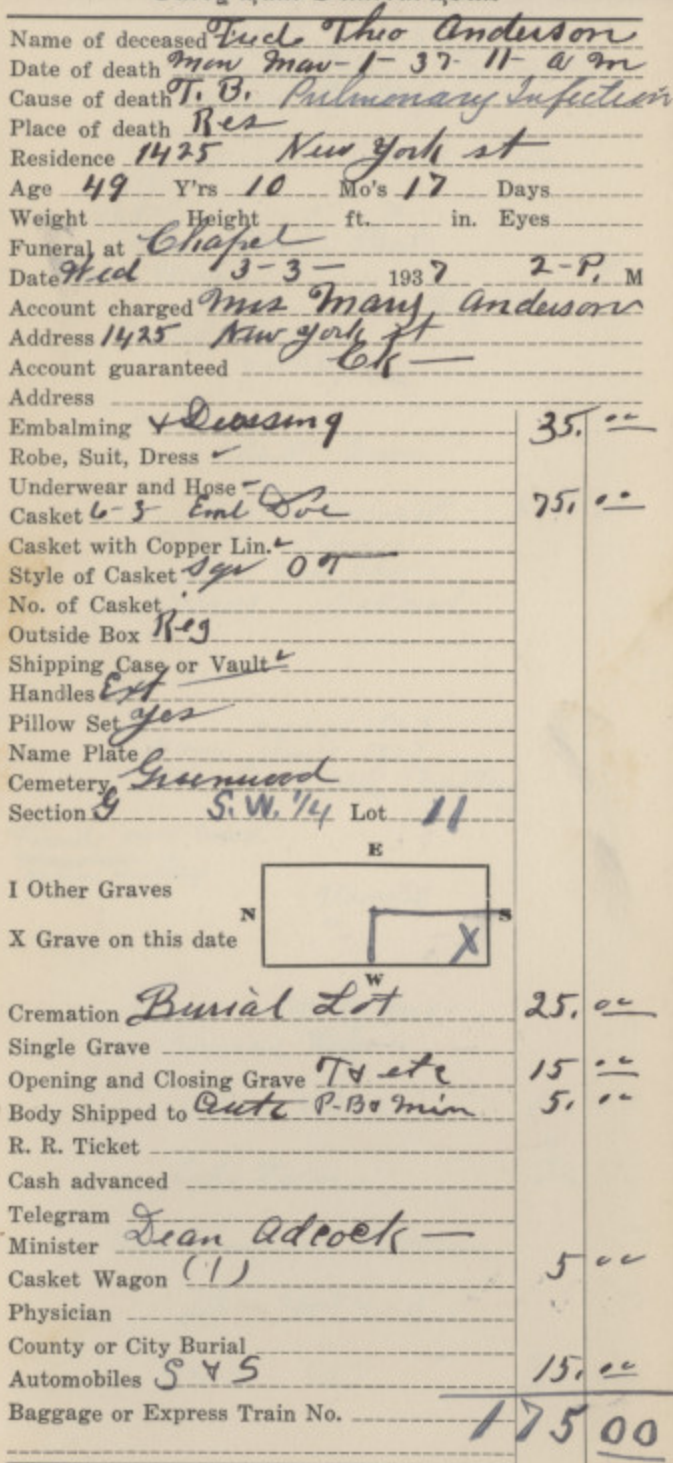 Name of deceased Fred Theo Anderson
Date of death Mon Mar-1-37 11-a m
Cause of death T. B. Pulmonary Infection
Place of death Res
Residence 1425 New York st
Age 49 Y'rs 10 Mo's 17 Days
Weight Height ft. in. Eyes
Funeral at Chapel
Date Wed 3-3- 1937 2-P. M
Account charged Mrs Mary Anderson
Address 1425 New York st
Account guaranteed Ok —
Address
Embalming & Dressing 35.00
Robe, Suit, Dress
Underwear and Hose
Casket 6-3 Eml Doe 75.00
Casket with Copper Lin.
Style of Casket Sqr O T
No. of Casket
Outside Box Reg
Shipping Case or Vault
Handles Ext
Pillow Set yes
Name Plate
Cemetery Greenwood
Section G S. W. 1/4 Lot 11
E
I Other Graves
N S
X Grave on this date X
W
Cremation Burial Lot 25.00
Single Grave
Opening and Closing Grave T & etc 15 00
Body Shipped to Auto P-B & min 5.00
R. R. Ticket
Cash advanced
Telegram
Minister Dean Adcock —
Casket Wagon (1) 5 00
Physician
County or City Burial
Automobiles S & S 15.00
Baggage or Express Train No. 175 00